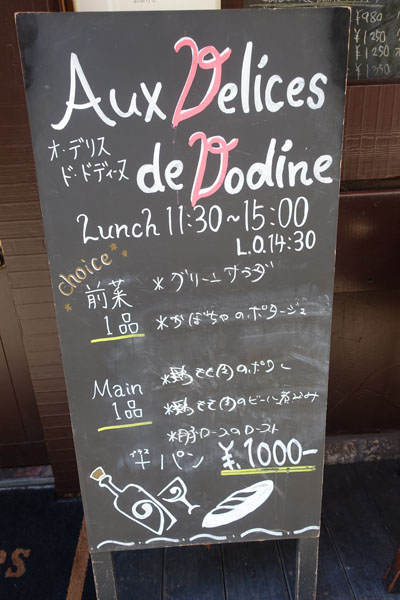 Aux Delices
オ・デリス
ド・ドディーヌ
de Dodine
Lunch 11:30~15:00
L.O.14:30
choice
前菜
1品
*グリーンサラダ
*かぼちゃのポタージュ
Main
1品
*鶏もも肉の
*鶏もも肉のビール煮込み
*豚ロースのロースト
パン ¥1000-
¥980
¥1250
¥1250
¥1350